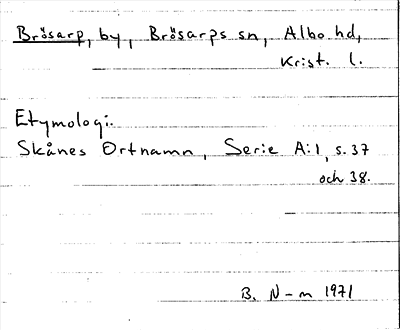 Brösarp, by, Brösarps sn, Albo hd,
Krist. l.
Etymologi:
Skånes Ortnamn, Serie A:1, s. 37
och 38.
B. N-m 1971